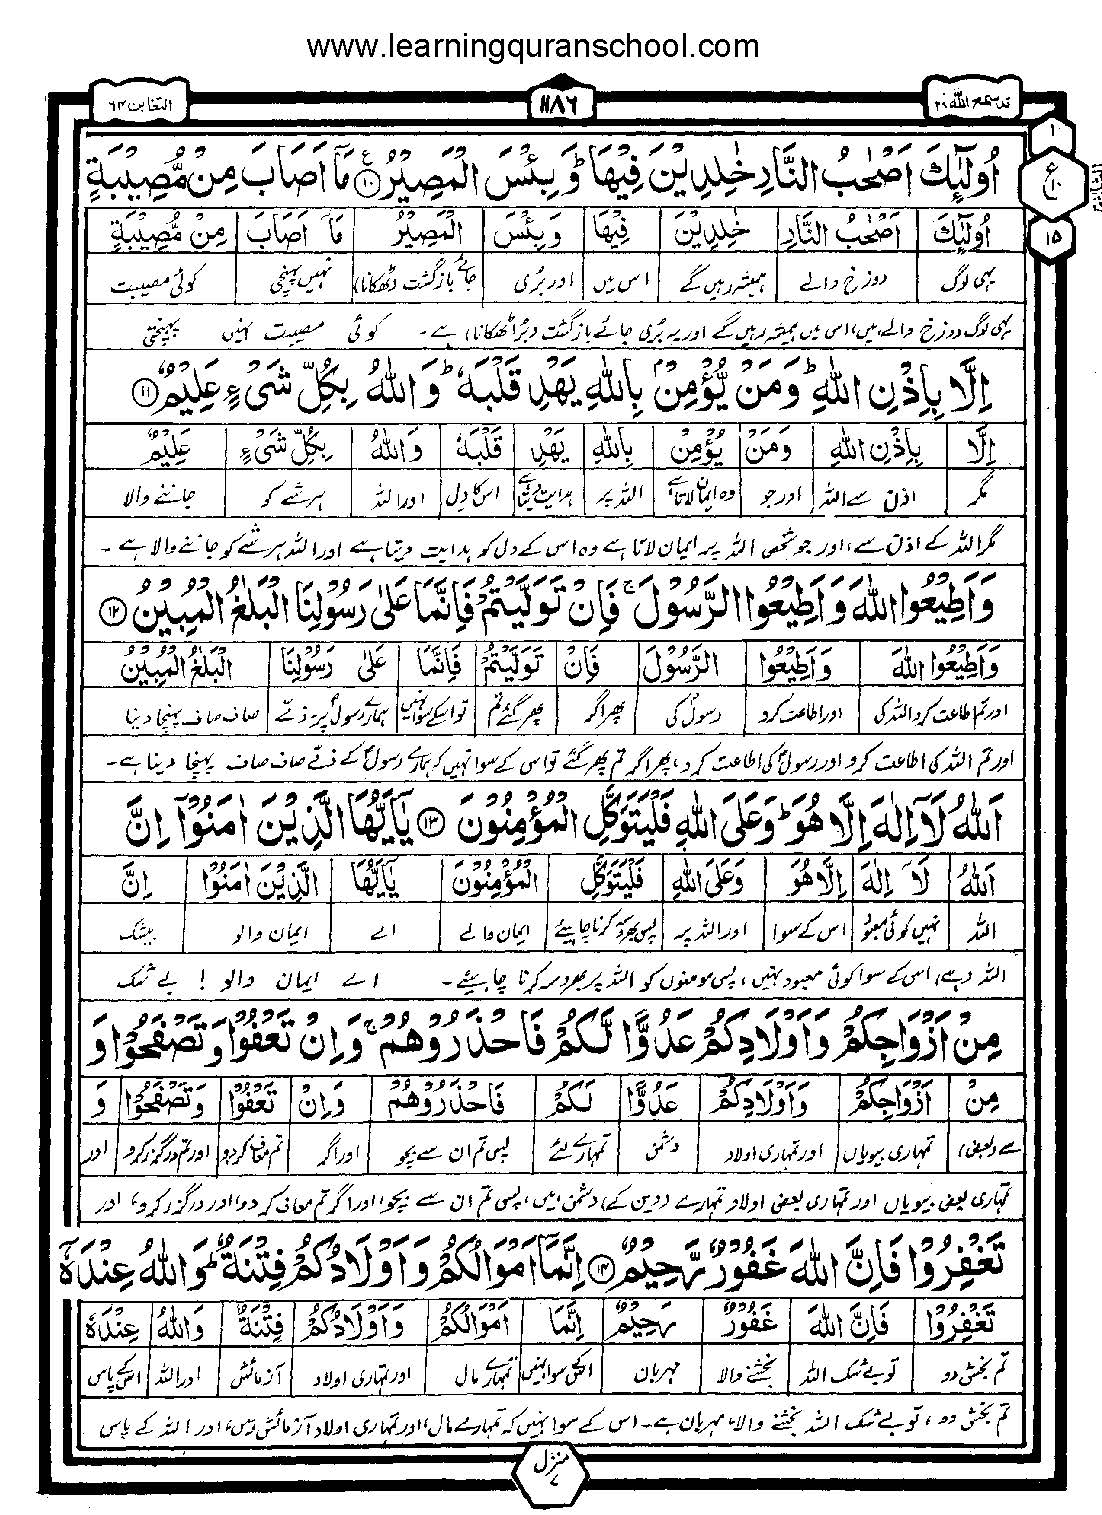 www.learningquranschool.com
قد سمع الله ٢٨
١١٨٦
التغابن ٦٤
١
ع
١٠
١٥
اُولٰٓئِكَ اَصْحٰبُ النَّارِ خٰلِدِيْنَ فِيْهَا ؕ وَبِئْسَ الْمَصِيْرُ ۱۰ مَاۤ اَصَابَ مِنْ مُّصِيْبَةٍ
اُولٰٓئِكَ اَصْحٰبُ النَّارِ خٰلِدِيْنَ فِيْهَا وَبِئْسَ الْمَصِيْرُ مَاۤ اَصَابَ مِنْ مُّصِيْبَةٍ
یہی لوگ دوزخ والے ہمیشہ رہیں گے اس میں اور بُری جائے بازگشت (ٹھکانا) نہیں پہنچتی کوئی مصیبت
یہی لوگ دوزخ والے ہیں، اس میں ہمیشہ رہیں گے اور یہ بُری جائے بازگشت (بُرا ٹھکانا) ہے۔ کوئی مصیبت نہیں پہنچتی
اِلَّا بِاِذْنِ اللّٰهِ ؕ وَمَنْ يُّؤْمِنْۢ بِاللّٰهِ يَهْدِ قَلْبَهٗ ؕ وَاللّٰهُ بِكُلِّ شَىْءٍ عَلِيْمٌ ۱۱
اِلَّا بِاِذْنِ اللّٰهِ وَمَنْ يُّؤْمِنْ بِاللّٰهِ يَهْدِ قَلْبَهٗ وَاللّٰهُ بِكُلِّ شَىْءٍ عَلِيْمٌ
مگر اذن سے اللہ اور جو وہ ایمان لاتا ہے اللہ پر ہدایت دیتا ہے اس کا دل اور اللہ ہر شے کو جاننے والا
مگر اللہ کے اذن سے، اور جو شخص اللہ پر ایمان لاتا ہے وہ اس کے دل کو ہدایت دیتا ہے اور اللہ ہر شے کو جاننے والا ہے۔
وَاَطِيْعُوا اللّٰهَ وَاَطِيْعُوا الرَّسُوْلَ ۚ فَاِنْ تَوَلَّيْتُمْ فَاِنَّمَا عَلٰى رَسُوْلِنَا الْبَلٰغُ الْمُبِيْنُ ۱۲
وَاَطِيْعُوا اللّٰهَ وَاَطِيْعُوا الرَّسُوْلَ فَاِنْ تَوَلَّيْتُمْ فَاِنَّمَا عَلٰى رَسُوْلِنَا الْبَلٰغُ الْمُبِيْنُ
اور تم اطاعت کرو اللہ کی اور اطاعت کرو رسول کی پھر اگر پھر گئے تم تو اسکے سوا نہیں ہمارے رسول پر ذمے صاف صاف پہنچا دینا
اور تم اللہ کی اطاعت کرو اور رسول کی اطاعت کرو، پھر اگر تم پھر گئے تو اس کے سوا نہیں کہ ہمارے رسول کے ذمے صاف صاف پہنچا دینا ہے۔
اَللّٰهُ لَاۤ اِلٰهَ اِلَّا هُوَ ؕ وَعَلَى اللّٰهِ فَلْيَتَوَكَّلِ الْمُؤْمِنُوْنَ ۱۳ يٰۤاَيُّهَا الَّذِيْنَ اٰمَنُوْۤا اِنَّ
اَللّٰهُ لَاۤ اِلٰهَ اِلَّا هُوَ وَعَلَى اللّٰهِ فَلْيَتَوَكَّلِ الْمُؤْمِنُوْنَ يٰۤاَيُّهَا الَّذِيْنَ اٰمَنُوْۤا اِنَّ
اللہ نہیں کوئی معبود اس کے سوا اور اللہ پر پس بھروسہ کرنا چاہیئے ایمان والے اے ایمان والو بیشک
اللہ (ہے)، اس کے سوا کوئی معبود نہیں، پس مومنوں کو اللہ پر بھروسہ کرنا چاہیئے۔ اے ایمان والو! بے شک
مِنْ اَزْوَاجِكُمْ وَاَوْلَادِكُمْ عَدُوًّا لَّكُمْ فَاحْذَرُوْهُمْ ۚ وَاِنْ تَعْفُوْا وَتَصْفَحُوْا وَ
مِنْ اَزْوَاجِكُمْ وَاَوْلَادِكُمْ عَدُوًّا لَّكُمْ فَاحْذَرُوْهُمْ وَاِنْ تَعْفُوْا وَتَصْفَحُوْا وَ
سے (بعض) تمہاری بیویاں اور تمہاری اولاد دشمن تمہارے لئے پس تم ان سے بچو اور اگر تم معاف کردو اور تم درگزر کرو اور
تمہاری بعض بیویاں اور تمہاری بعض اولاد تمہارے (دین کے) دشمن ہیں، پس تم ان سے بچو، اور اگر تم معاف کر دو اور درگزر کرو، اور
تَغْفِرُوْا فَاِنَّ اللّٰهَ غَفُوْرٌ رَّحِيْمٌ ۱۴ اِنَّمَاۤ اَمْوَالُكُمْ وَاَوْلَادُكُمْ فِتْنَةٌ ؕ وَاللّٰهُ عِنْدَهٗۤ
تَغْفِرُوْا فَاِنَّ اللّٰهَ غَفُوْرٌ رَّحِيْمٌ اِنَّمَاۤ اَمْوَالُكُمْ وَاَوْلَادُكُمْ فِتْنَةٌ وَاللّٰهُ عِنْدَهٗ
تم بخش دو تو بے شک اللہ بخشنے والا مہربان اسکے سوا نہیں تمہارے مال اور تمہاری اولاد آزمائش اور اللہ اس کے پاس
تم بخش دو، تو بے شک اللہ بخشنے والا، مہربان ہے۔ اس کے سوا نہیں کہ تمہارے مال، اور تمہاری اولاد آزمائش ہیں، اور اللہ کے پاس
منزل ۷